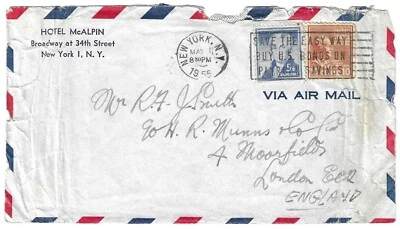 HOTEL McALPIN
Broadway at 34th Street
New York 1, N. Y.
NEW YORK, N.Y.
MAY
8 PM
1955
SAVE THE EASY WAY
BUY U.S. BONDS ON
SAVINGS
VIA AIR MAIL
Mr R. J. Smith
c/o H. R. Munns & Co
4 Moorfields
London EC2
ENGLAND